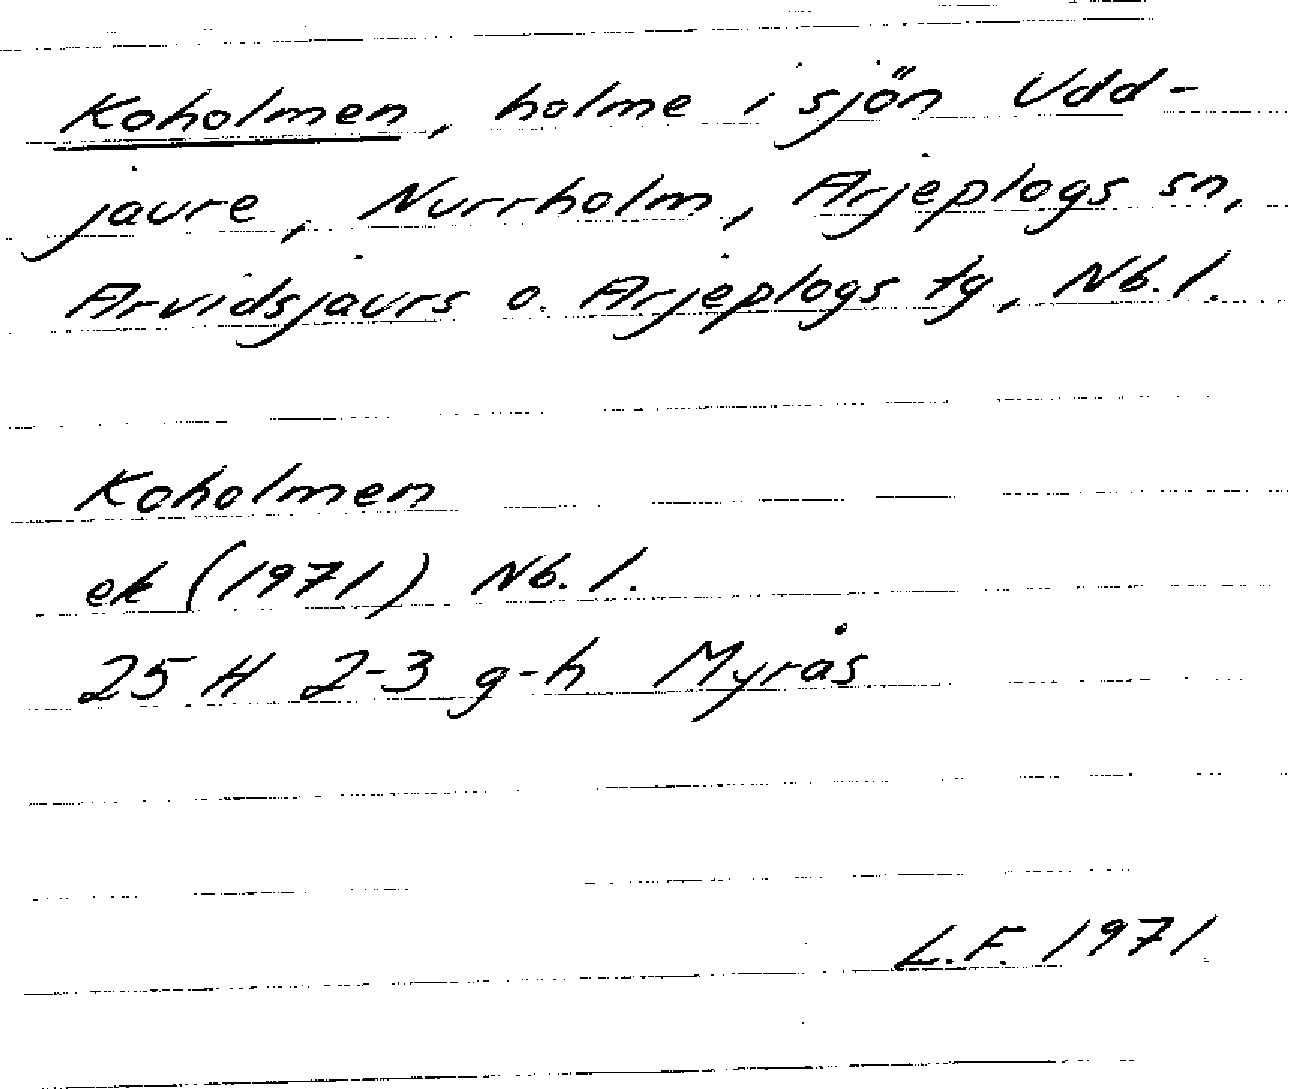 Koholmen, holme i sjön Udd-
jaure, Nurrholm, Arjeplogs sn,
Arvidsjaurs o. Arjeplogs tg, Nb. l.
Koholmen
ek (1971) Nb. l.
25 H 2-3 g-h Myrås
L.F. 1971